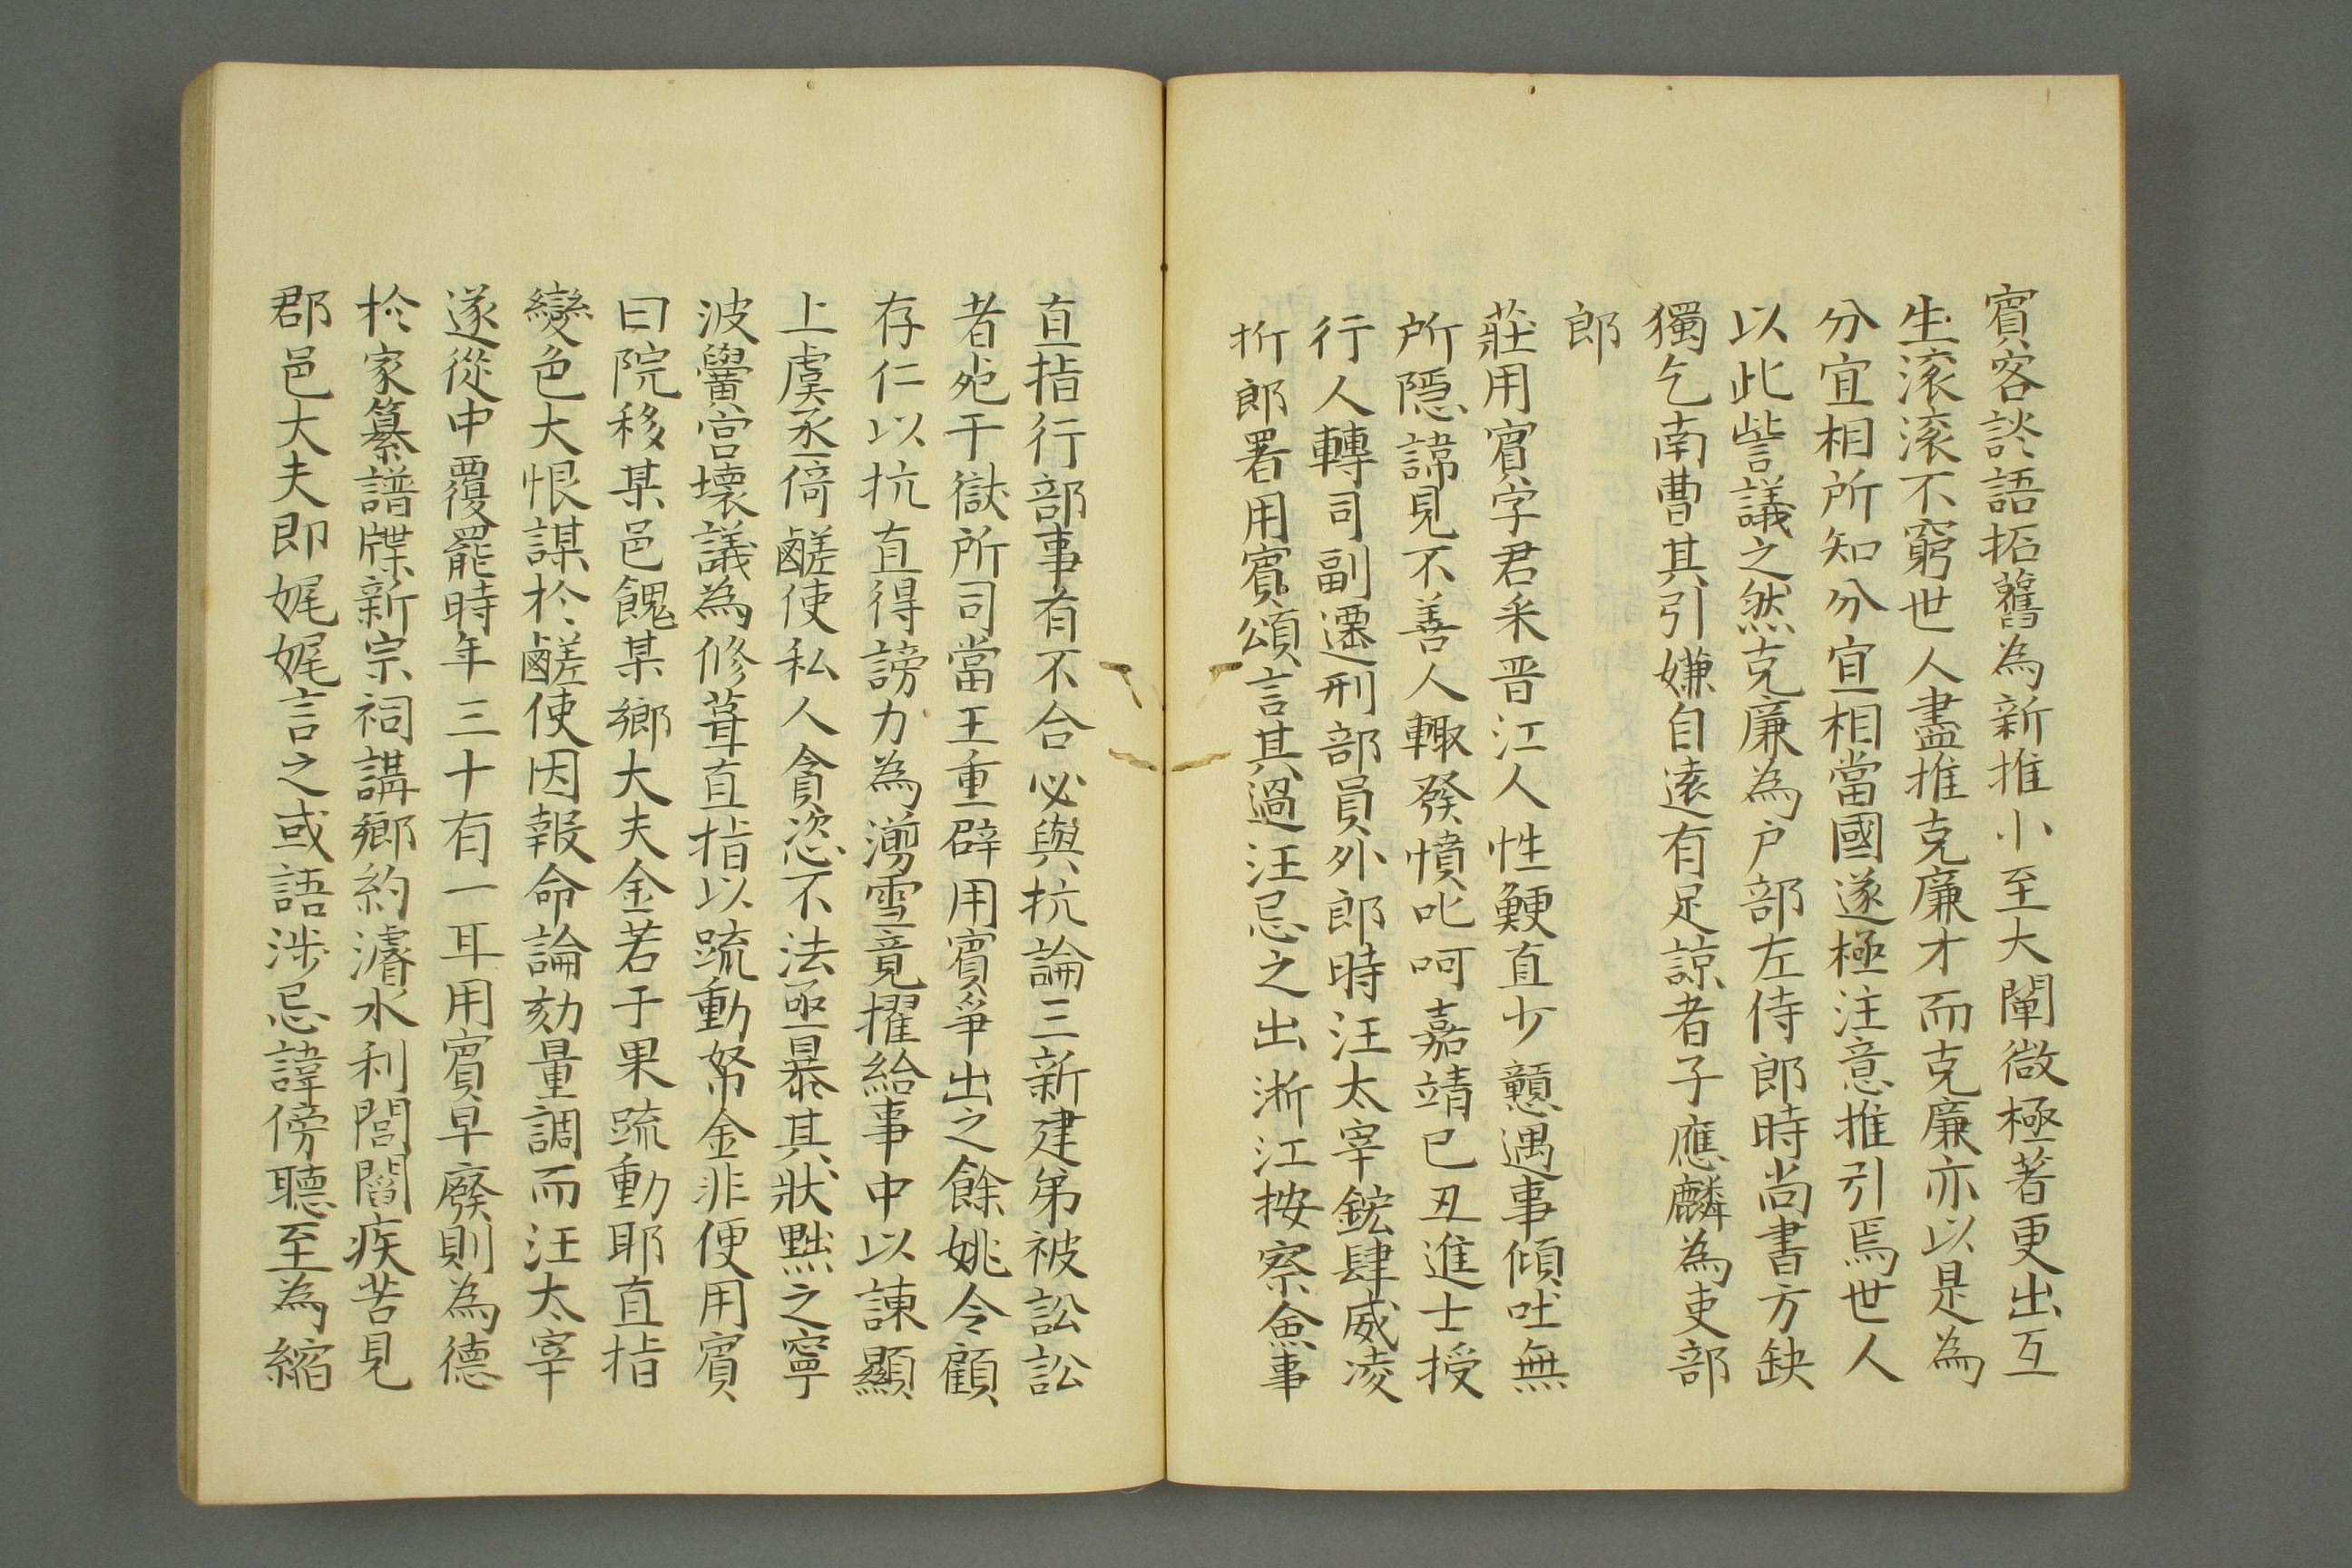 賓客談語拓舊為新推小至大闡微極著更出互
生滚滚不窮世人盡推克廉才而克廉亦以是為
分宜相所知分宜相當國遂極注意推引焉世人
以此訾議之然克廉為户部左侍郎時尚書方缺
獨乞南曹其引嫌自遠有足諒者子應麟為吏部
郎
莊用賓字君采晋江人性鯁直少戇遇事傾吐無
所隱諱見不善人輙發憤叱呵嘉靖已丑進士授
行人轉司副遷刑部員外郎時汪太宰鋐肆威凌
折郎署用賓頌言其過汪忌之出浙江按察僉事
直指行部事有不合必與抗論三新建弟被訟訟
者死干獄所司當王重辟用賓爭出之餘姚令顧
存仁以抗直得謗力為湔雪竟擢給事中以諫顯
上虞丞倚鹺使私人貪恣不法亟暴其狀黜之寧
波黌宮壞議為修葺直指以疏動帑金非便用賓
曰院移某邑餽某鄉大夫金若于果疏動耶直指
變色大恨謀於鹺使因報命論劾量調而汪太宰
遂從中覆罷時年三十有一耳用賓早廢則為德
於家纂譜牒新宗祠講鄉約濬水利閭閻疾苦見
郡邑大夫即娓娓言之或語涉忌諱傍聽至為縮